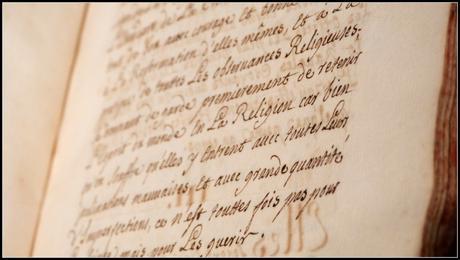 de La
avec courage et
à La Reformation d'elles mêmes, et à La
pratique de toutes Les observances Religieuses.
garde premierement de retenir
L'Esprit du monde En La Religion car bien
qu'on souffre qu'elles y Entrent avec toutes Leurs
inclinations mauvaises, et avec grande quantité
d'Imperfections, ce n'est touttes fois pas pour
mais pour Les guerir.